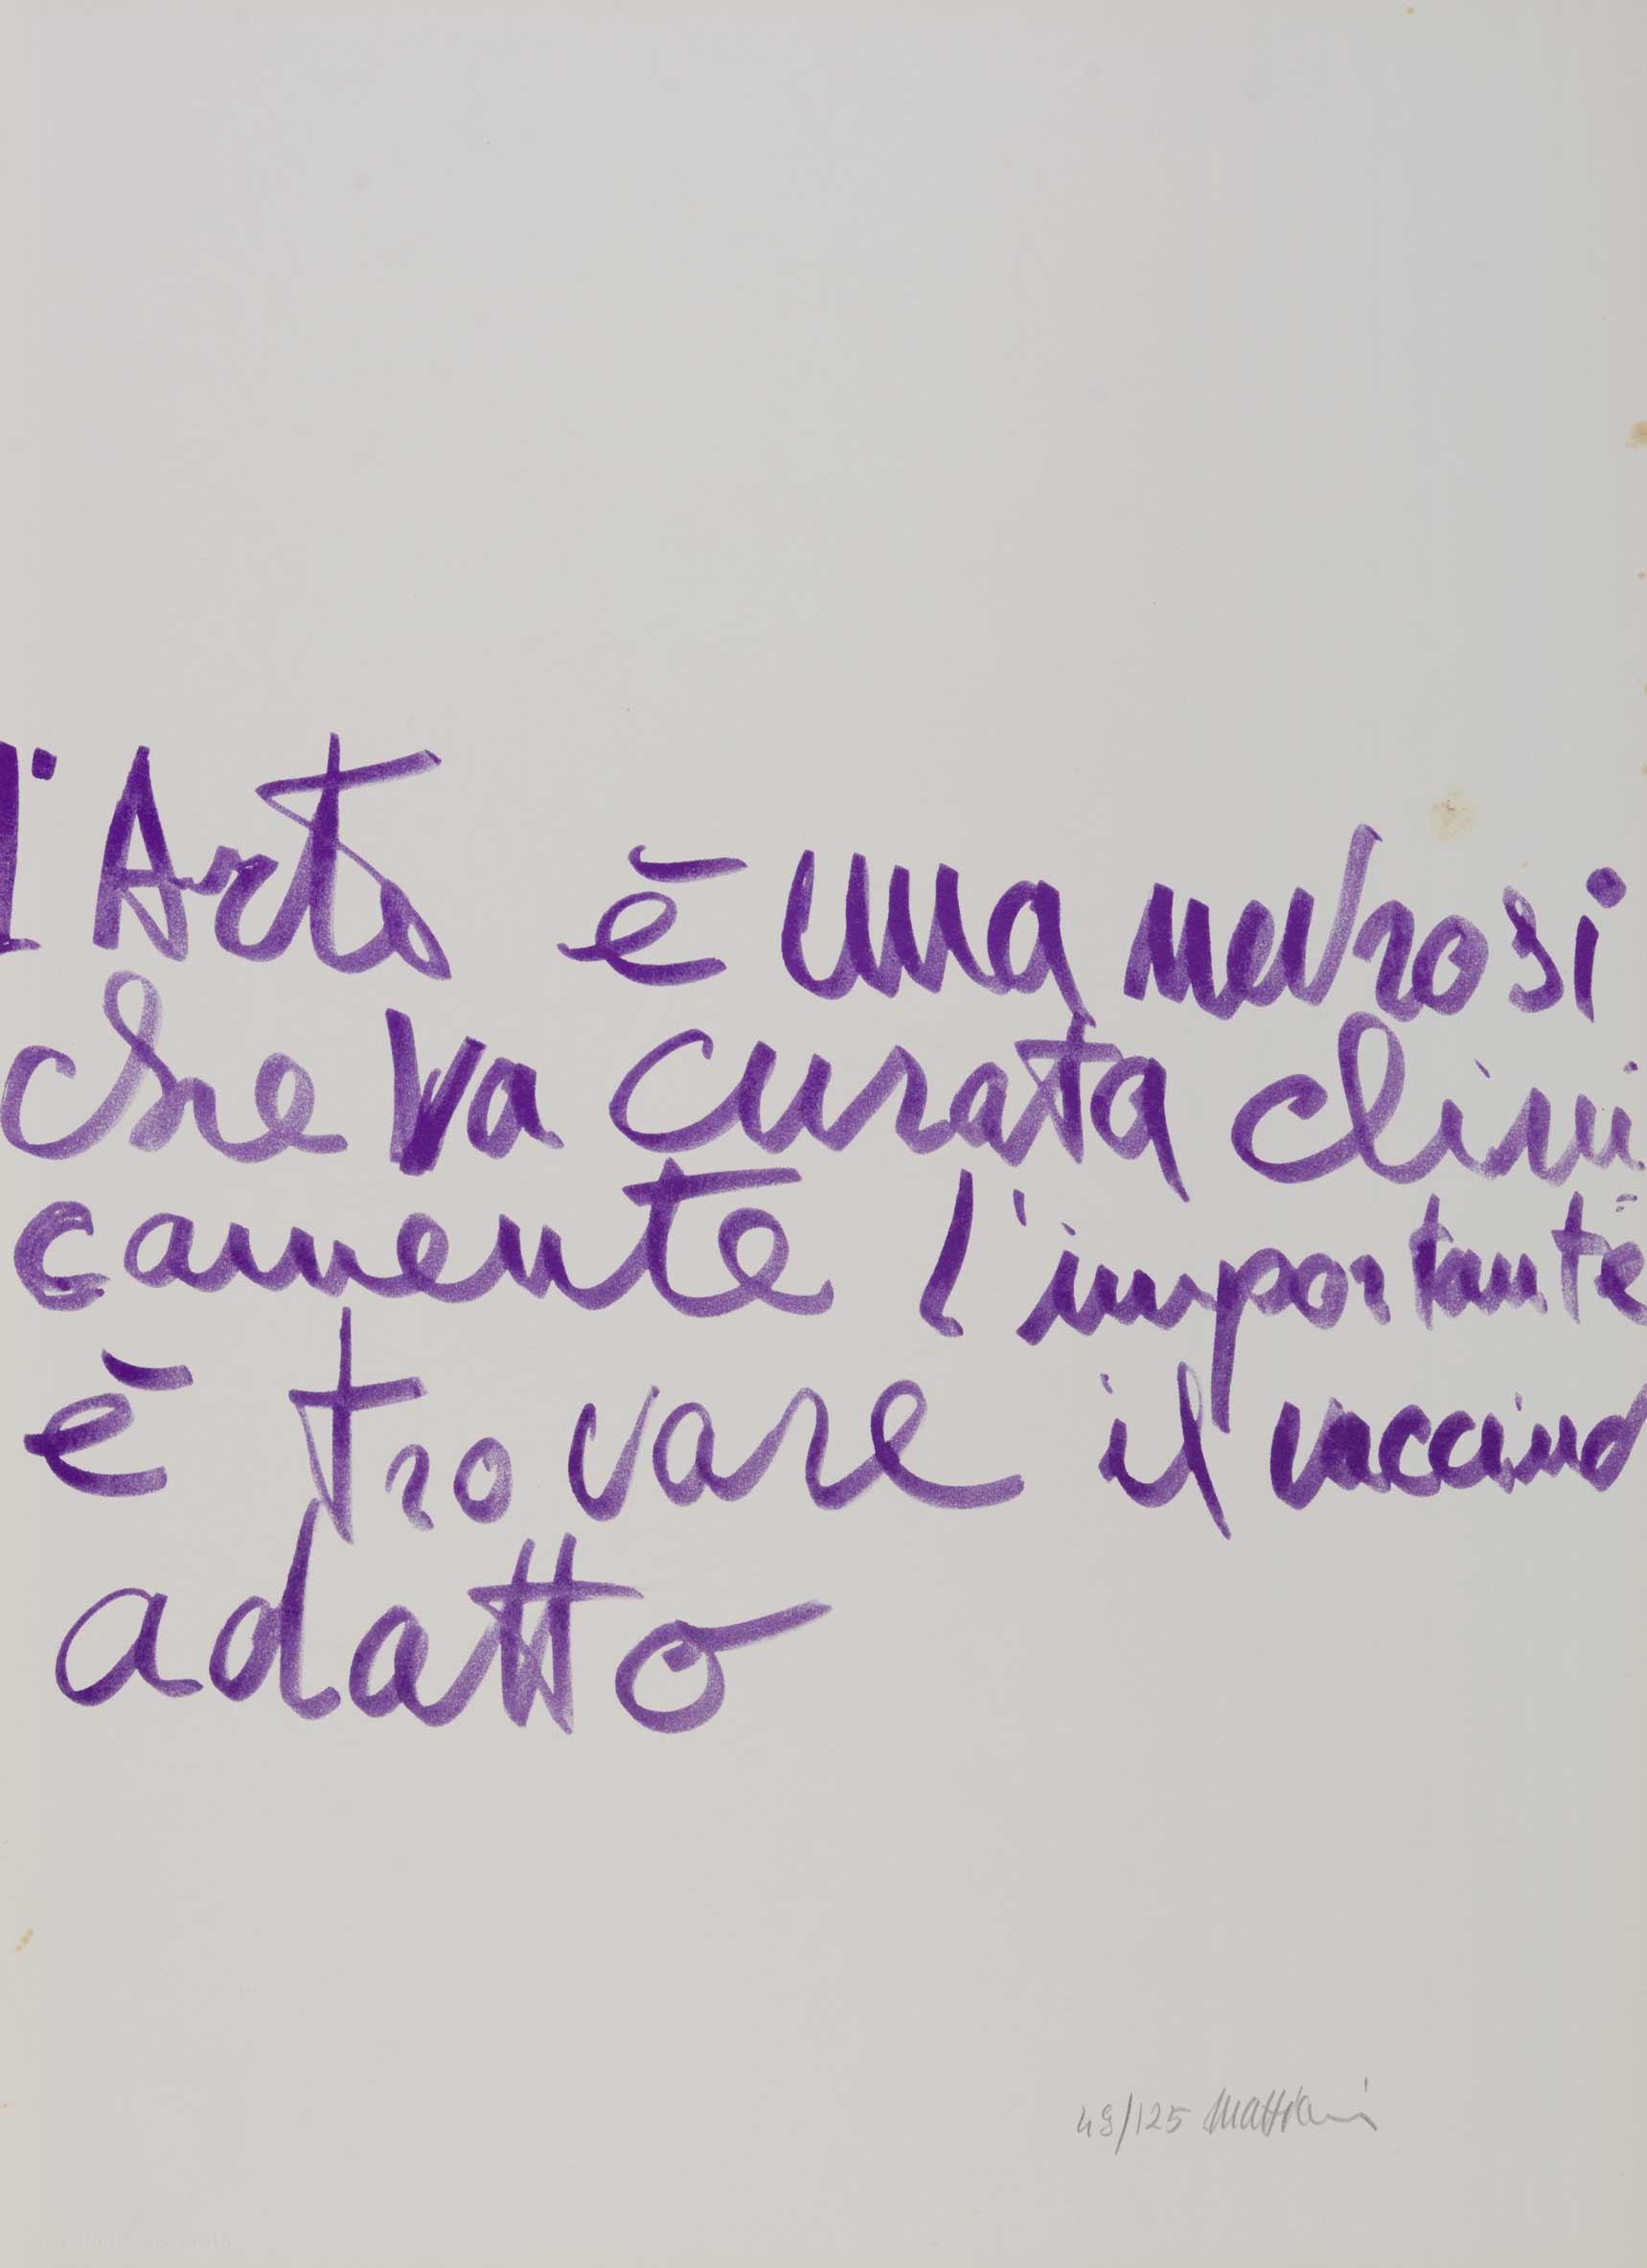 l'Arte è una nevrosi
che va curata clini
camente l'importante
è trovare il vaccino
adatto
49/125 Mattiacci